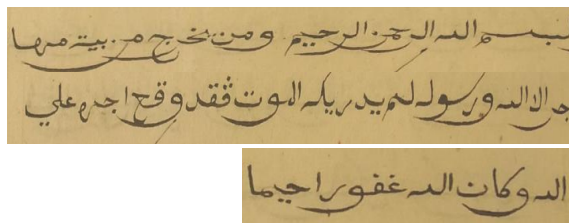 بسم الله الرحمن الرحيم ومن يخرج من بيته مها
جر الا الله ورسوله ثم يدريكه الموت فقد وقع اجره علي
الله وكان الله غفورا حيما